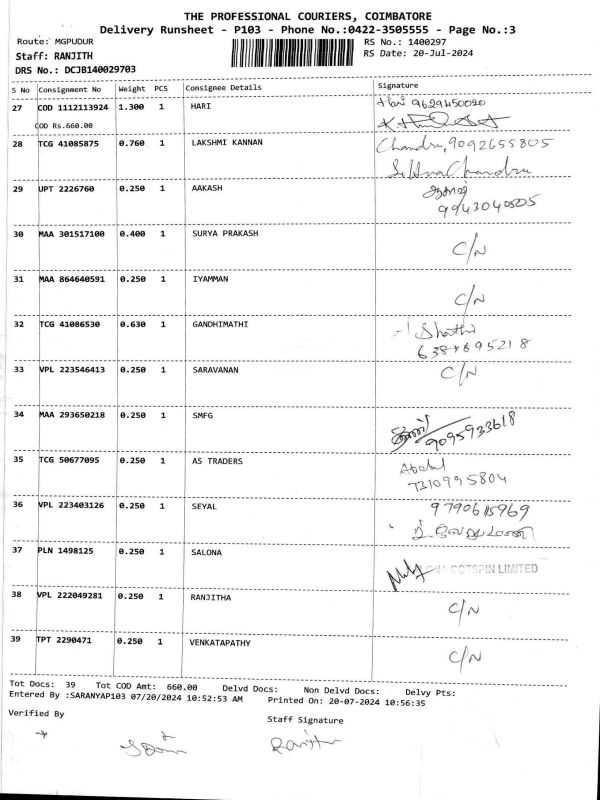 THE PROFESSIONAL COURIERS, COIMBATORE
Delivery Runsheet - P103 - Phone No.:0422-3505555 - Page No.:3
Route: MGPUDUR RS No.: 1400297
Staff: RANJITH RS Date: 20-Jul-2024
DRS No.: DCJB140029703
S No Consignment No Weight PCS Consignee Details Signature
27 COD 1112113924 1.300 1 HARI Hari 9629450020
COD Rs.660.00
28 TCG 41085875 0.760 1 LAKSHMI KANNAN Chandru, 9092655805
29 UPT 2226760 0.250 1 AAKASH
30 MAA 301517100 0.400 1 SURYA PRAKASH C/N
31 MAA 864640591 0.250 1 IYAMMAN C/N
32 TCG 41086530 0.630 1 GANDHIMATHI Shanthi
33 VPL 223546413 0.250 1 SARAVANAN C/N
34 MAA 293650218 0.250 1 SMFG 9095933618
35 TCG 50677095 0.250 1 AS TRADERS
7310995804
36 VPL 223403126 0.250 1 SEYAL
37 PLN 1498125 0.250 1 SALONA COTSPIN LIMITED
38 VPL 222049281 0.250 1 RANJITHA C/N
39 TPT 2290471 0.250 1 VENKATAPATHY C/N
Tot Docs: 39 Tot COD Amt: 660.00 Delvd Docs: Non Delvd Docs: Delvy Pts:
Entered By :SARANYAP103 07/20/2024 10:52:53 AM Printed On: 20-07-2024 10:56:35
Verified By Staff Signature